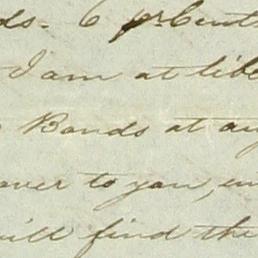 ds. 6 pr Cent
I am at libe
Bonds at any
over to you, un
will find the